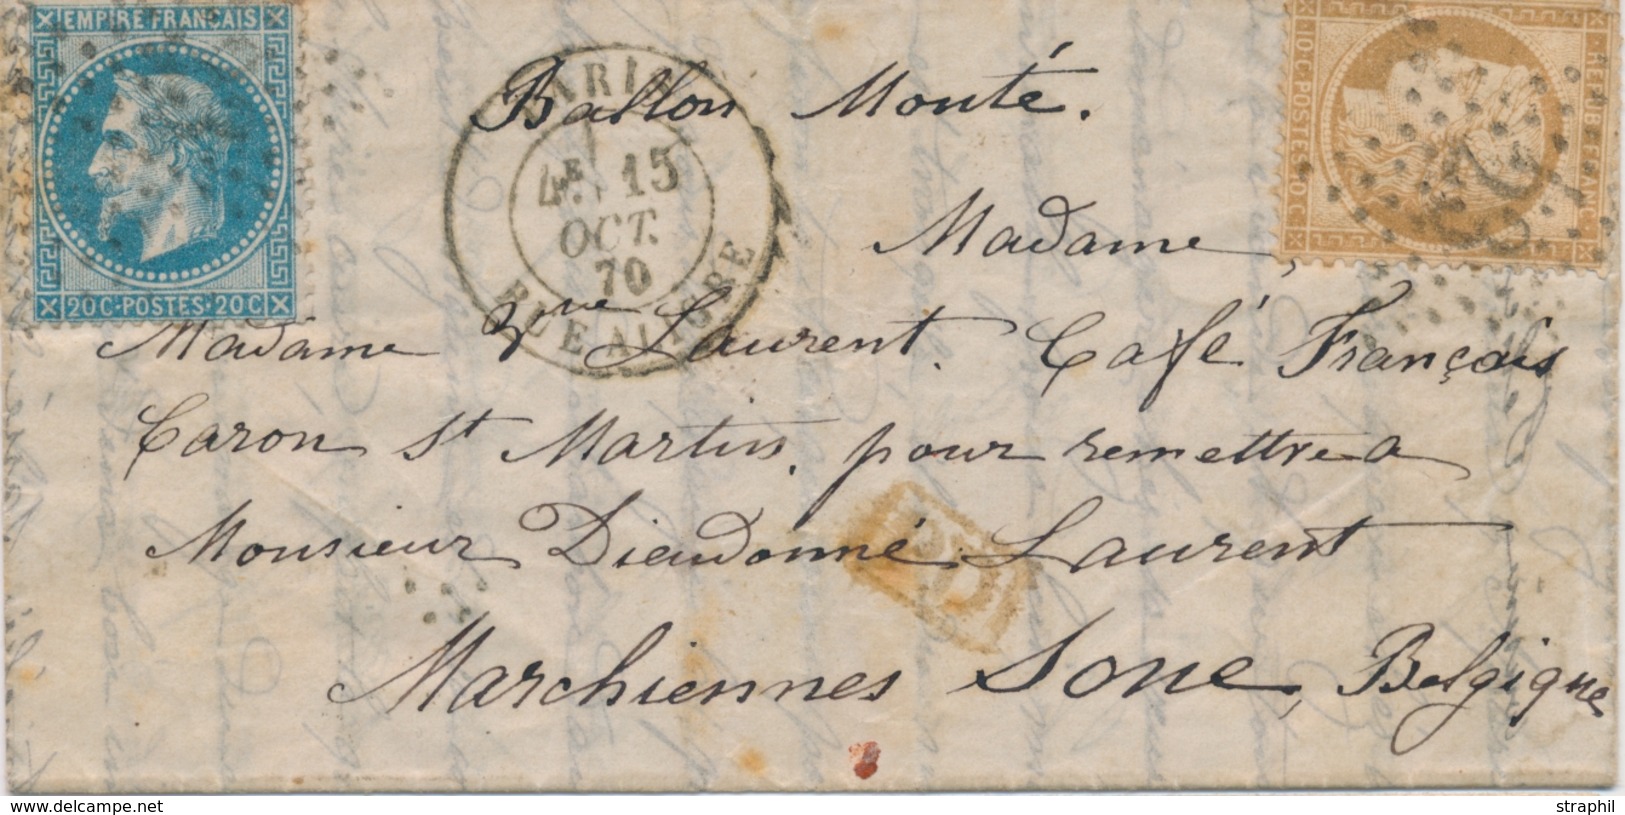 EMPIRE FRANÇAIS
20 C·POSTES·20 C
PARIS
4E. 15
OCT.
70
RUE AUBRE
10 C·POSTES·10 C
REPUB FRANC
Ballon Monté.
Madame,
Madame Vve Laurent. Café Français
Caron St Martin. pour remettre a
Monsieur Dieudonné Laurent
Marchiennes Sone, Belgique
PD
straphil-de.delcampe.net
straphil